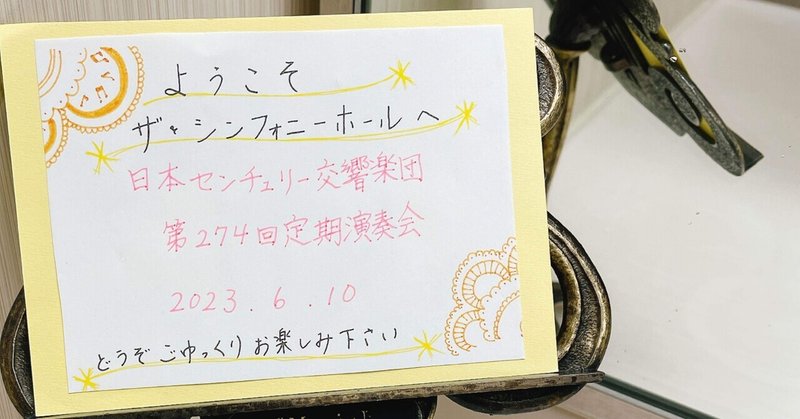 ようこそ
ザ・シンフォニーホールへ
日本センチュリー交響楽団
第274回定期演奏会
2023.6.10
どうぞごゆっくりお楽しみ下さい